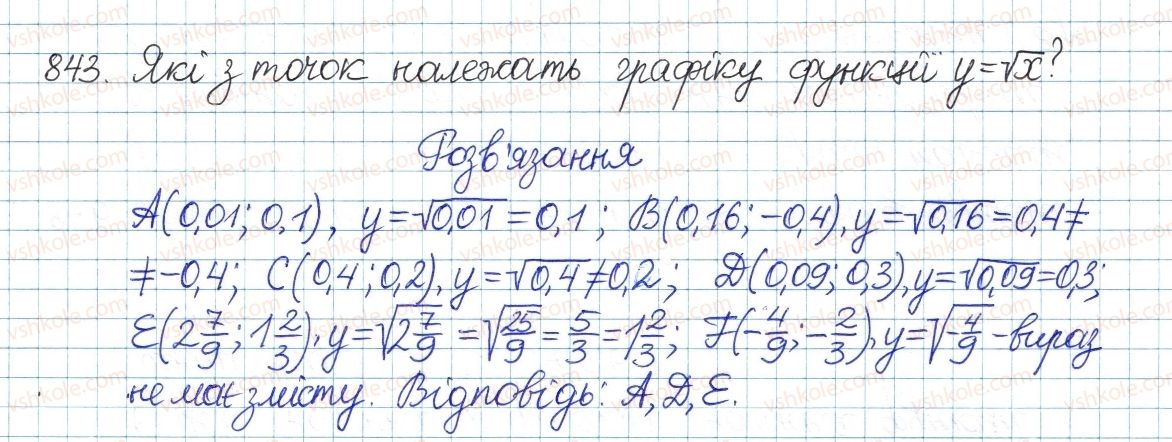 843. Які з точок належать графіку функції y=√x?
Розв'язання
A(0,01; 0,1), y=√0,01=0,1; B(0,16; -0,4), y=√0,16=0,4≠
≠-0,4; C(0,4; 0,2), y=√0,4≠0,2; D(0,09; 0,3), y=√0,09=0,3;
E(2 7/9; 1 2/3), y=√(2 7/9)=√(25/9)=5/3=1 2/3; F(-4/9; -2/3), y=√(-4/9)-вираз
не має змісту. Відповідь: A, D, E.